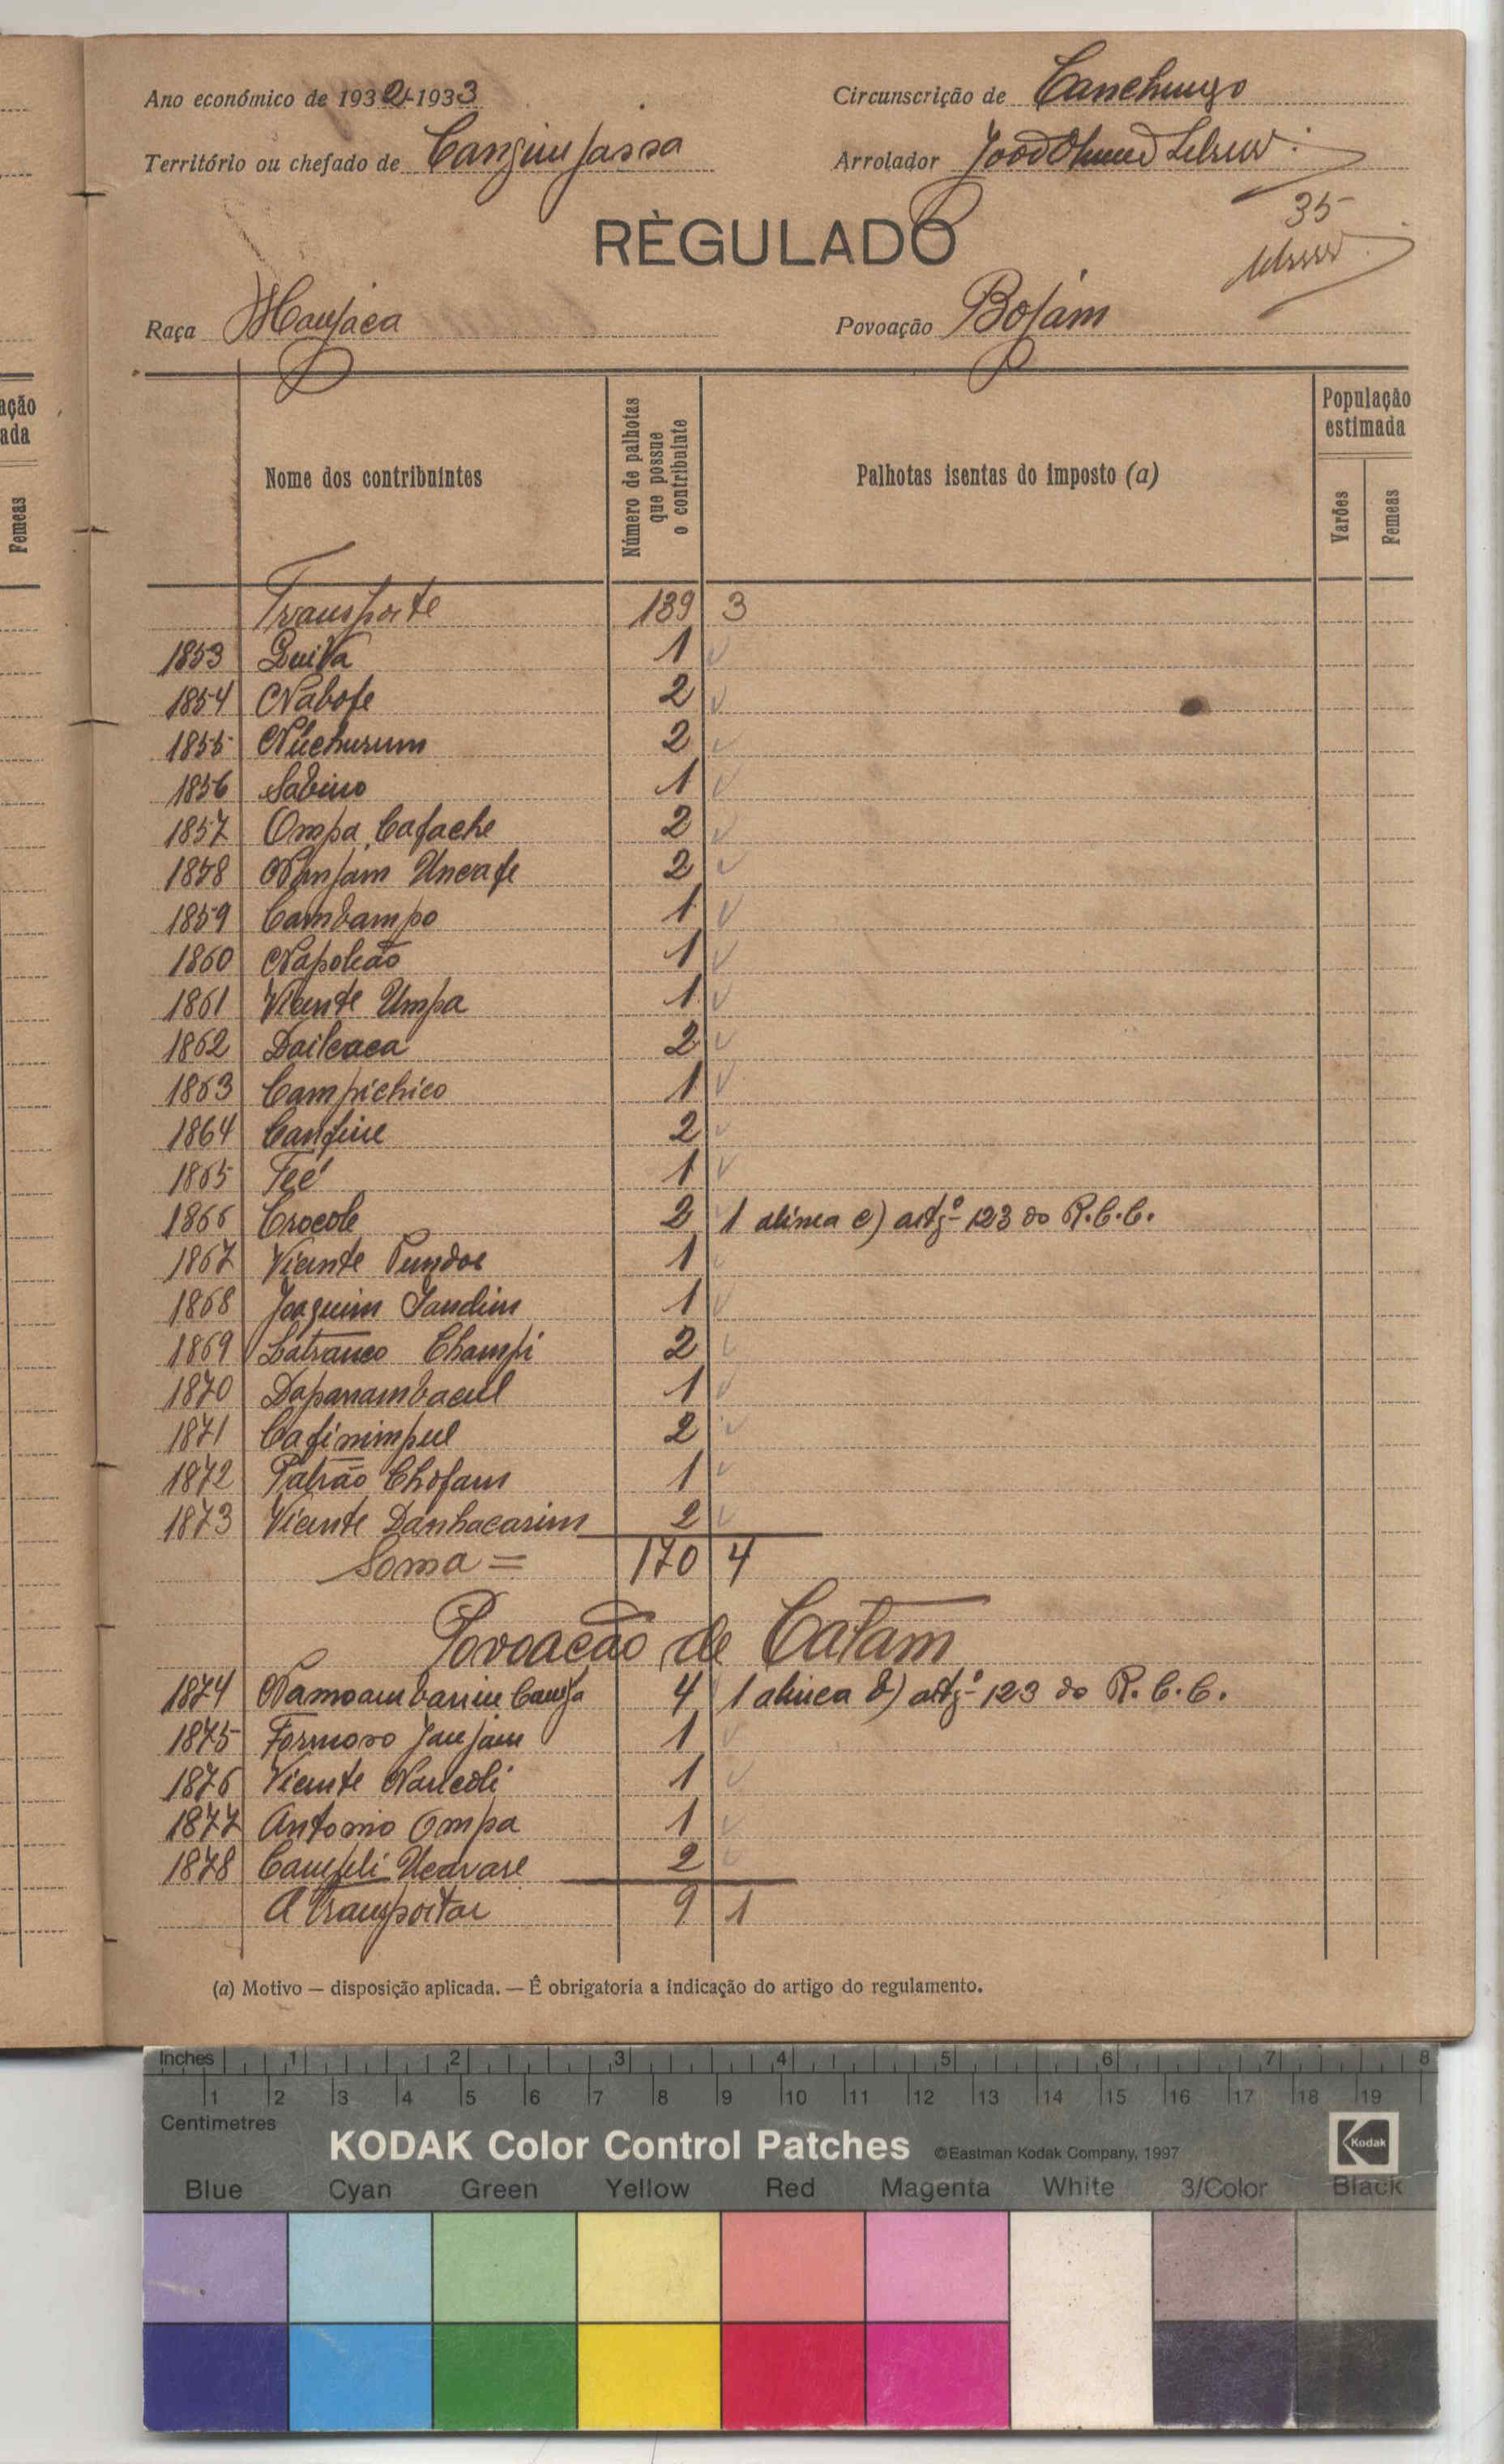 Ano económico de 1932-1933
Circunscrição de Canchungo
Território ou chefado de
Arrolador
35
RÈGULADO
Raça Manjaca
Povoação Bojám
ação
ada
Femeas
Nome dos contribuintes
Número de palhotas
que possue
o contribuinte
Palhotas isentas do imposto (a)
População
estimada
Varões
Femeas
Transporte 139 3
1853 1
1854 Nabofe 2
1855 Nuchurum 2
1856 Sabino 1
1857 Ompa Cafache 2
1858 Uncafe 2
1859 Cambampo 1
1860 Napoleão 1
1861 Vicente Umpa 1
1862 Dailcaca 2
1863 Campichico 1
1864 Canfine 2
1865 Feé 1
1866 Crocole 2 1 alinea c) artgº 123 do R.C.C.
1867 Vicente 1
1868 Joaquim Jandim 1
1869 Latranco Champi 2
1870 Dapanambacul 1
1871 Cafinimpul 2
1872 Patrão Chofam 1
1873 Vicente Danhacarim 2
Soma = 170 4
Povoação de Catam
1874 4 1 alinea b) artgº 123 do R.C.C.
1875 Formoso Janjam 1
1876 Vicente Naricoli 1
1877 Antonio Ompa 1
1878 2
A transportar 9 1
(a) Motivo — disposição aplicada. — É obrigatoria a indicação do artigo do regulamento.
Inches 1 2 3 4 5 6 7 8
1 2 3 4 5 6 7 8 9 10 11 12 13 14 15 16 17 18 19
Centimetres
KODAK Color Control Patches ©Eastman Kodak Company, 1997 Kodak
Blue Cyan Green Yellow Red Magenta White 3/Color Black